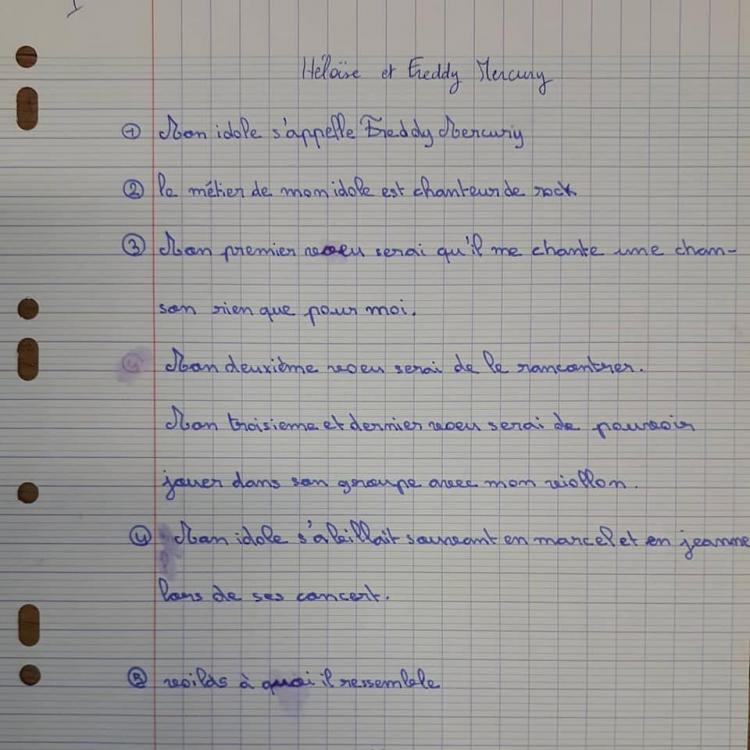 Héloïse et Freddy Mercury
① Mon idole s'appelle Freddy Mercury
② le métier de mon idole est chanteur de rock
③ Mon premier voeu serai qu'il me chante une chan-
son rien que pour moi.
Mon deuxième voeu serai de le rancontrer.
Mon troisieme et dernier voeu serai de pouvoir
jouer dans son groupe avec mon viollon.
④ Mon idole s'abillait souvant en marcel et en jeanne
lors de ses concert.
⑤ voilds à quoi il ressemble